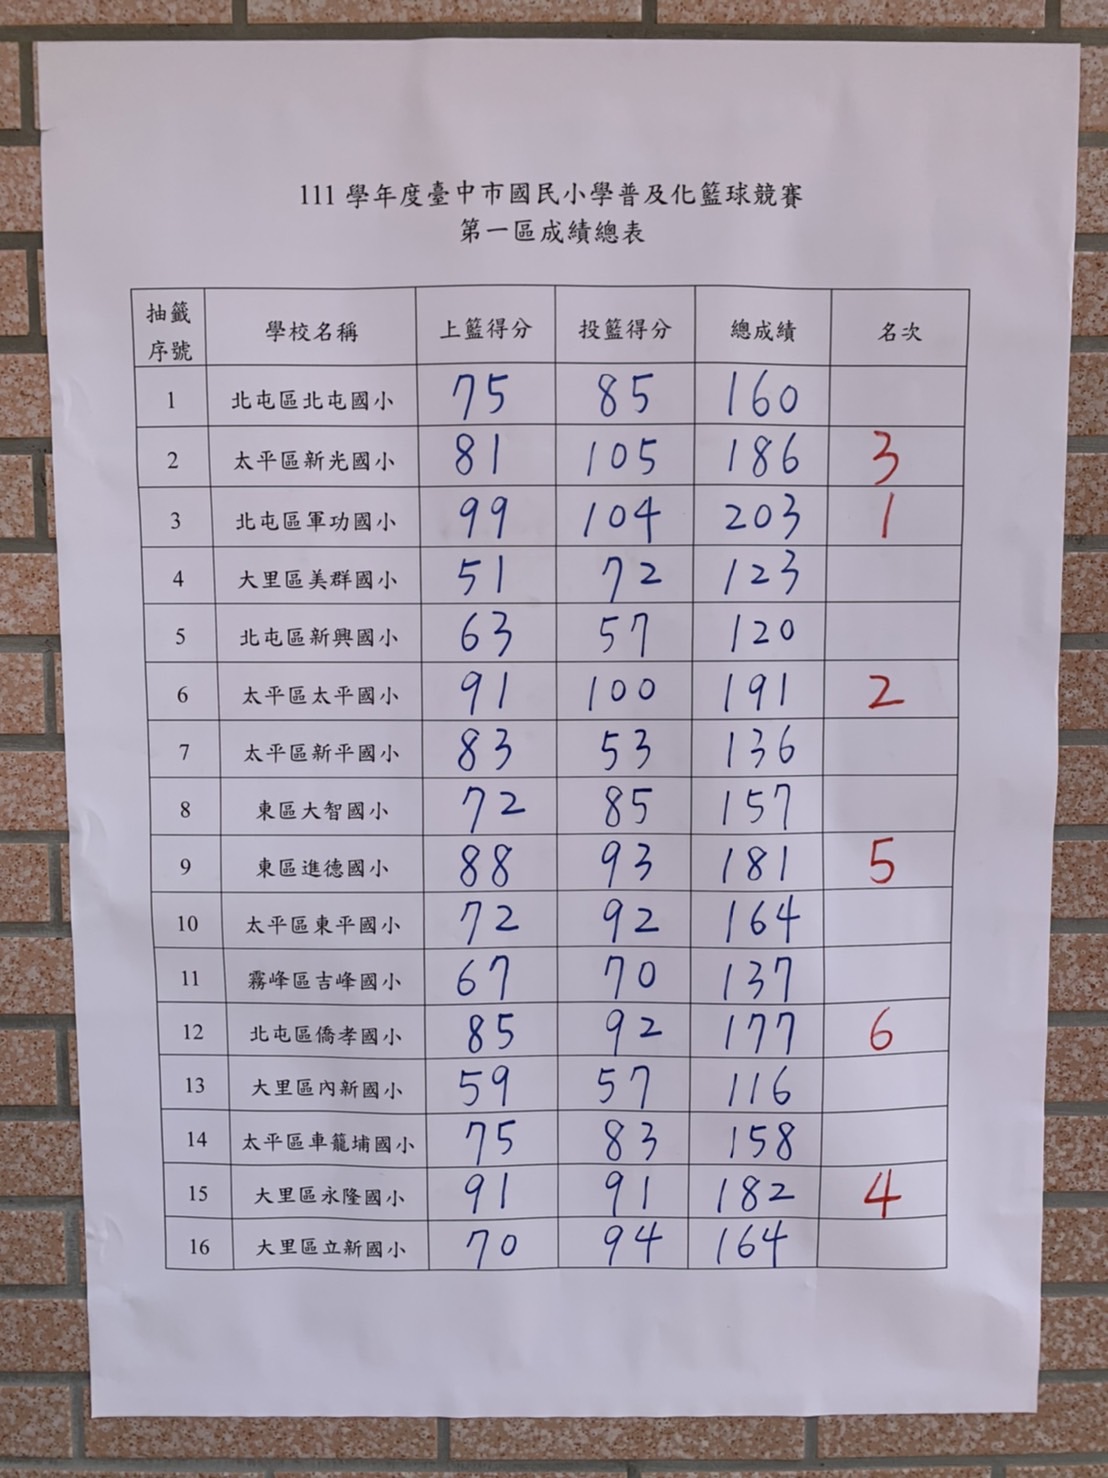 111 學年度臺中市國民小學普及化籃球競賽
第一區成績總表
抽籤序號 學校名稱 上籃得分 投籃得分 總成績 名次
1 北屯區北屯國小 75 85 160
2 太平區新光國小 81 105 186 3
3 北屯區軍功國小 99 104 203 1
4 大里區美群國小 51 72 123
5 北屯區新興國小 63 57 120
6 太平區太平國小 91 100 191 2
7 太平區新平國小 83 53 136
8 東區大智國小 72 85 157
9 東區進德國小 88 93 181 5
10 太平區東平國小 72 92 164
11 霧峰區吉峰國小 67 70 137
12 北屯區僑孝國小 85 92 177 6
13 大里區內新國小 59 57 116
14 太平區車籠埔國小 75 83 158
15 大里區永隆國小 91 91 182 4
16 大里區立新國小 70 94 164